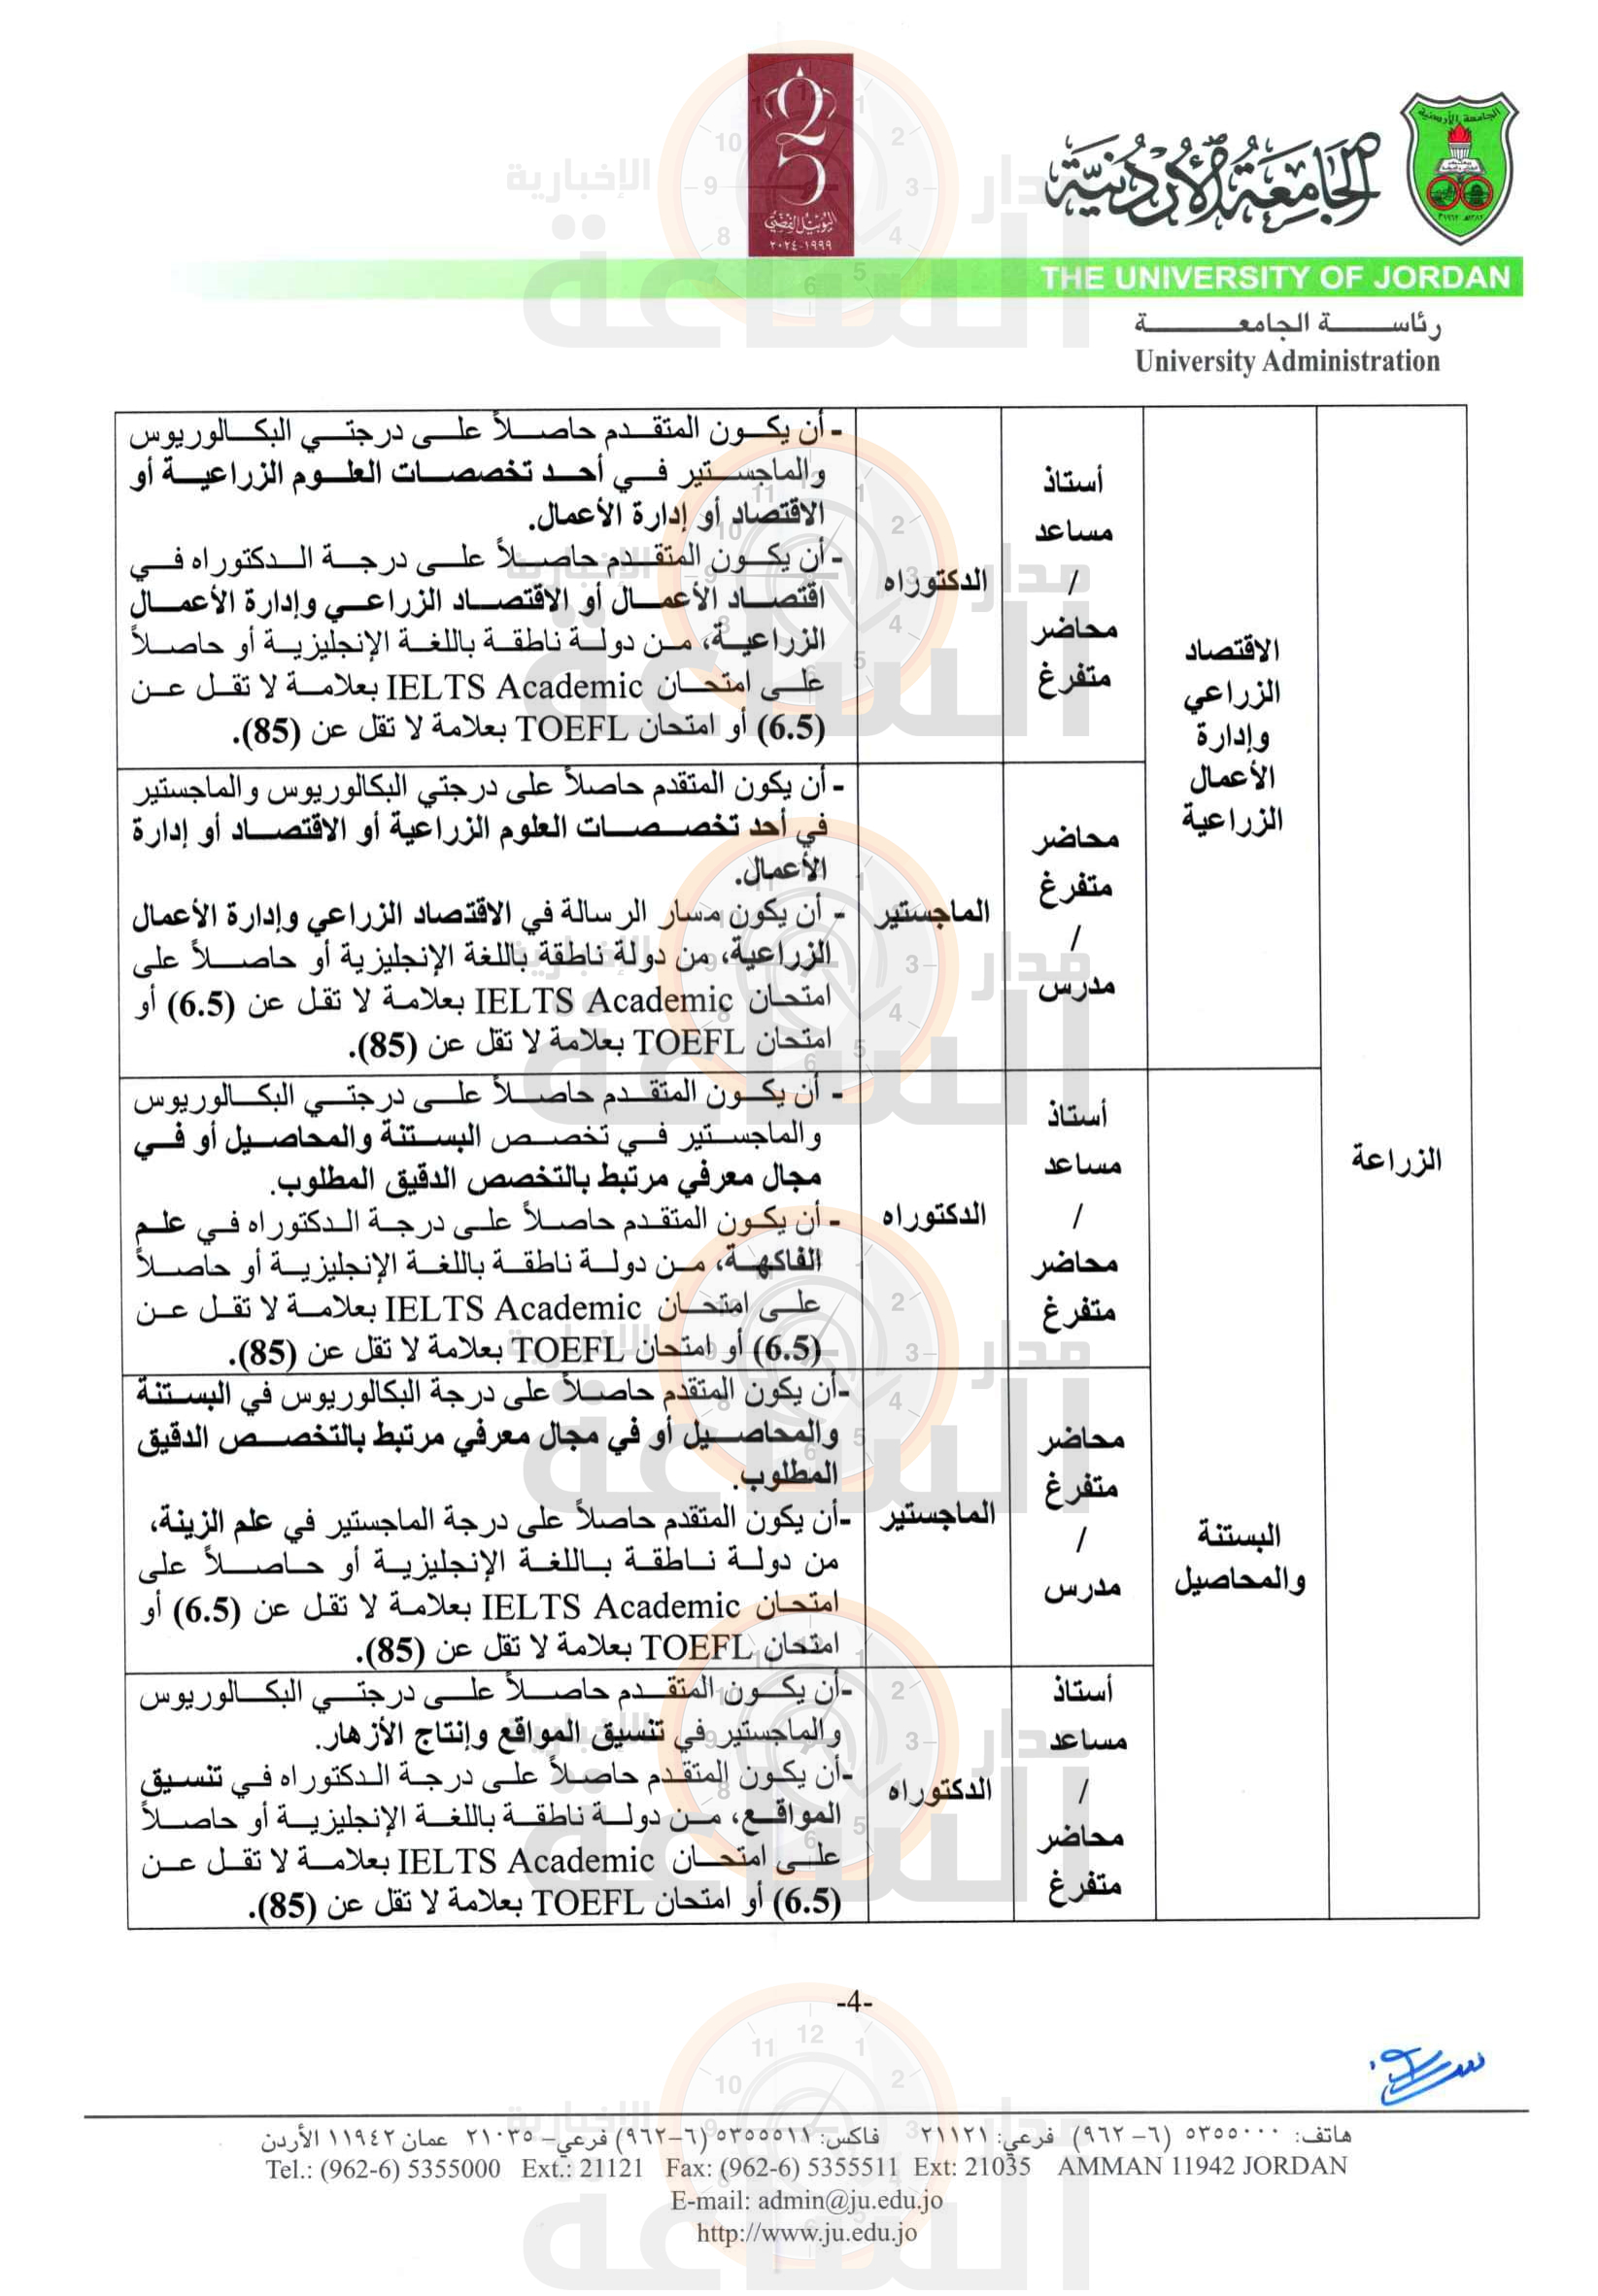 الجامعة الأردنية
اليوبيل الفضي
١٩٩٩-٢٠٢٤
THE UNIVERSITY OF JORDAN
رئاسة الجامعة
University Administration
الزراعة
الاقتصاد
الزراعي
وإدارة
الأعمال
الزراعية
أستاذ
مساعد
/
محاضر
متفرغ
الدكتوراه
- أن يكون المتقدم حاصلاً على درجتي البكالوريوس
والماجستير في أحد تخصصات العلوم الزراعية أو
الاقتصاد أو إدارة الأعمال.
- أن يكون المتقدم حاصلاً على درجة الدكتوراه في
اقتصاد الأعمال أو الاقتصاد الزراعي وإدارة الأعمال
الزراعية، من دولة ناطقة باللغة الإنجليزية أو حاصلاً
على امتحان IELTS Academic بعلامة لا تقل عن
(6.5) أو امتحان TOEFL بعلامة لا تقل عن (85).
محاضر
متفرغ
/
مدرس
الماجستير
- أن يكون المتقدم حاصلاً على درجتي البكالوريوس والماجستير
في أحد تخصصات العلوم الزراعية أو الاقتصاد أو إدارة
الأعمال.
- أن يكون مسار الرسالة في الاقتصاد الزراعي وإدارة الأعمال
الزراعية، من دولة ناطقة باللغة الإنجليزية أو حاصلاً على
امتحان IELTS Academic بعلامة لا تقل عن (6.5) أو
امتحان TOEFL بعلامة لا تقل عن (85).
البستنة
والمحاصيل
أستاذ
مساعد
/
محاضر
متفرغ
الدكتوراه
- أن يكون المتقدم حاصلاً على درجتي البكالوريوس
والماجستير في تخصص البستنة والمحاصيل أو في
مجال معرفي مرتبط بالتخصص الدقيق المطلوب.
- أن يكون المتقدم حاصلاً على درجة الدكتوراه في علم
الفاكهة، من دولة ناطقة باللغة الإنجليزية أو حاصلاً
على امتحان IELTS Academic بعلامة لا تقل عن
(6.5) أو امتحان TOEFL بعلامة لا تقل عن (85).
محاضر
متفرغ
/
مدرس
الماجستير
-أن يكون المتقدم حاصلاً على درجة البكالوريوس في البستنة
والمحاصيل أو في مجال معرفي مرتبط بالتخصص الدقيق
المطلوب.
-أن يكون المتقدم حاصلاً على درجة الماجستير في علم الزينة،
من دولة ناطقة باللغة الإنجليزية أو حاصلاً على
امتحان IELTS Academic بعلامة لا تقل عن (6.5) أو
امتحان TOEFL بعلامة لا تقل عن (85).
أستاذ
مساعد
/
محاضر
متفرغ
الدكتوراه
-أن يكون المتقدم حاصلاً على درجتي البكالوريوس
والماجستير في تنسيق المواقع وإنتاج الأزهار.
-أن يكون المتقدم حاصلاً على درجة الدكتوراه في تنسيق
المواقع، من دولة ناطقة باللغة الإنجليزية أو حاصلاً
على امتحان IELTS Academic بعلامة لا تقل عن
(6.5) أو امتحان TOEFL بعلامة لا تقل عن (85).
-4-
هاتف: ٥٣٥٥٠٠٠ (٦-٩٦٢) فرعي: ٢١١٢١ فاكس: ٥٣٥٥٥١١ (٦-٩٦٢) فرعي- ٢١٠٣٥ عمان ١١٩٤٢ الأردن
Tel.: (962-6) 5355000 Ext.: 21121 Fax: (962-6) 5355511 Ext: 21035 AMMAN 11942 JORDAN
E-mail: admin@ju.edu.jo
http://www.ju.edu.jo
مدار الساعة الإخبارية